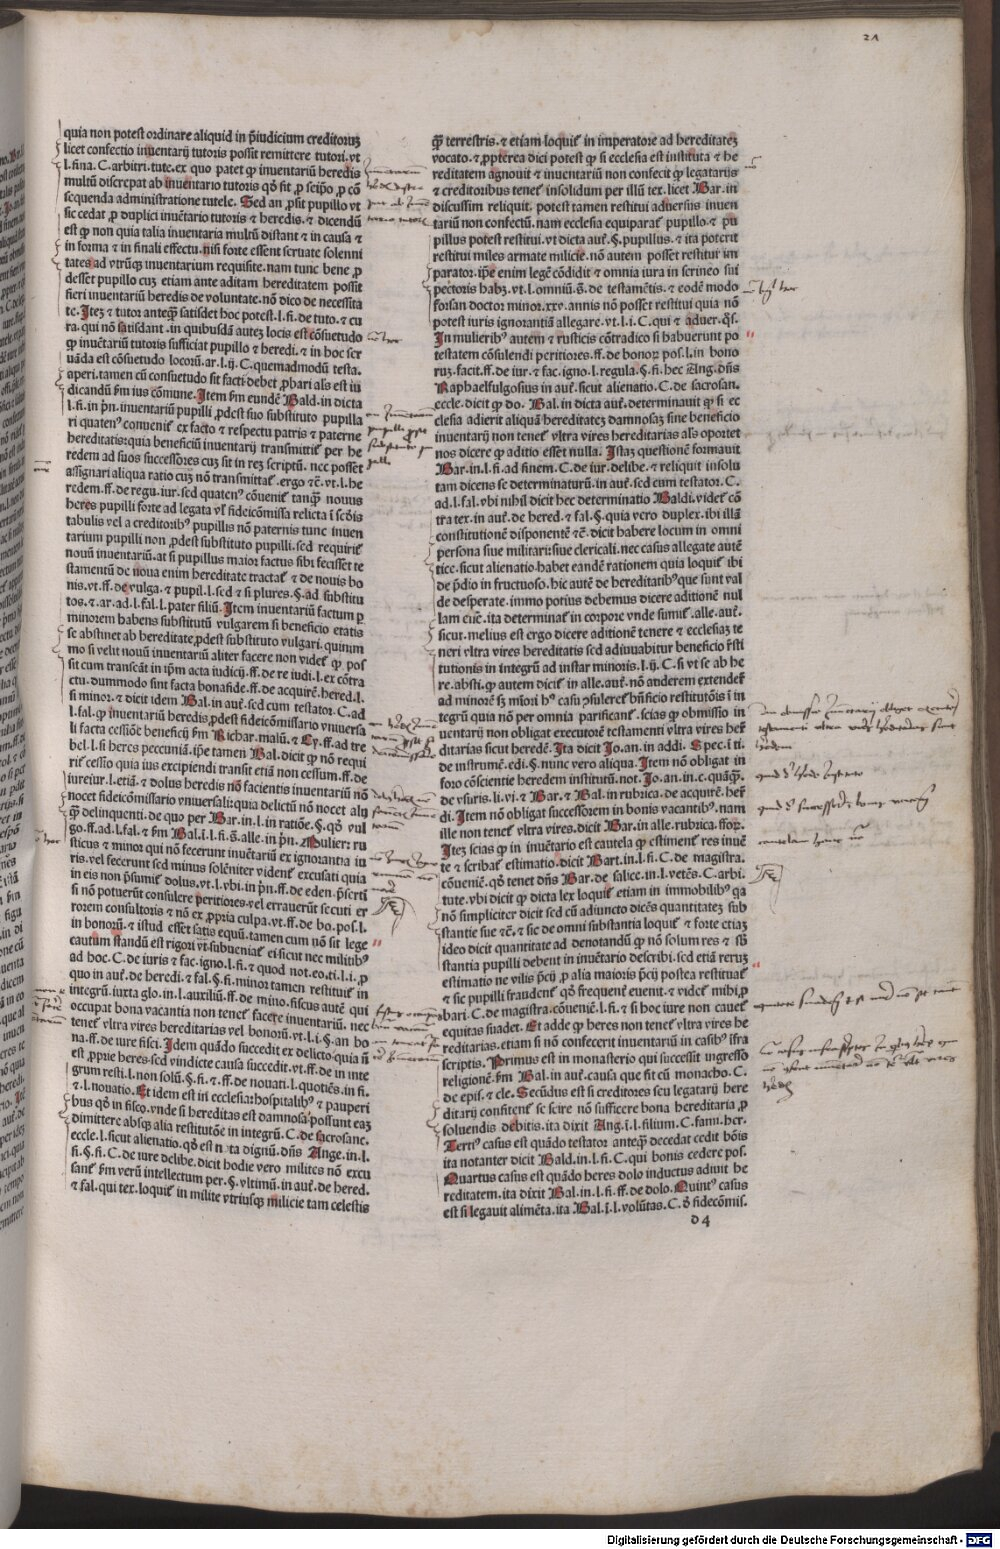 21
quia non potest ordinare aliquid in p̃iudicium creditoruꝫ
licet confectio inuentarij tutoris possit remittere tutori. vt
l. fina. C. arbitri. tute. ex quo patet ꝙ inuentariũ heredis
multũ discrepat ab inuentario tutoris qð sit ꝓ seip̃o ꝓ cõ
sequenda administratione tutele. Sed an ꝓsit pupillo vt
sic cedat ꝓ duplici inuẽtario tutoris ⁊ heredis. ⁊ dicendũ
est ꝙ non quia talia inuentaria multũ distant ⁊ in causa ⁊
in forma ⁊ in finali effectu. nisi forte essent seruate solenni
tates ad vtrũqꝫ inuentarium requisite. nam tunc bene ꝓ
desset pupillo cuꝫ etiam ante aditam hereditatem possit
fieri inuentariũ heredis de voluntate. nõ dico de necessita
te. Iteꝫ ⁊ tutor anteqꝫ̃ satisdet hoc potest. l. fi. de tuto. ⁊ cu
ra. qui nõ satisdant. in quibusdã auteꝫ locis est cõsuetudo
ꝙ inuẽtariũ tutoris sufficiat pupillo ⁊ heredi. ⁊ in hoc ser
uãda est cõsuetudo locorũ. ar. l. ij. C. quemadmodũ testa.
aperi. tamen cũ consuetudo sit facti debet ꝓbari als̃ est iu
dicandũ ẜm ius cõmune. Item ẜm eundẽ Bald. in dicta
l. fi. in pñ. inuentariũ pupilli ꝓdest suo substituto pupilla
ri quatenꝰ conuenit ex facto ⁊ respectu patris ⁊ paterne
hereditatis: quia beneficiũ inuentarij transmittit per he
redem ad suos successores cuꝫ sit in reꝫ scriptũ. nec posset
assignari aliqua ratio cuꝫ nõ transmittat. ergo ⁊c̃. vt. l. he
redem. ff. de regu. iur. sed quatenꝰ cõuenit tanqꝫ̃ nouus
heres pupilli forte ad legata vel fideicõmissa relicta ĩ scõis
tabulis vel a creditoribꝰ pupillis nõ paternis tunc inuen
tarium pupilli non ꝓdest substituto pupilli. sed requirit
nouũ inuentariũ. at si pupillus maior factus sibi fecisset te
stamentũ de noua enim hereditate tractat ⁊ de nouis bo
nis. vt. ff. de vulga. ⁊ pupil. l. sed ⁊ si plures. §. ad substitu
tos. ⁊ ar. ad. l. fal. l. pater filiũ. Item inuentariũ factum ꝑ
minorem habens substitutũ vulgarem si beneficio etatis
se abstinet ab hereditate ꝓdest substituto vulgari. quinim
mo si velit nouũ inuentariũ aliter facere non videt ꝙ pos
sit cum transeãt in ip̃m acta iudicij. ff. de re iudi. l. ex cõtra
ctu. dummodo sint facta bonafide. ff. de acquirẽ. hered. l.
si minor. ⁊ dicit idem Bal. in aut̃. sed cum testator. C. ad
l. fal. ꝙ inuentariũ heredis ꝓdest fideicõmissario vniuersa
li facta cessiõe beneficij ẜm Richar. malũ. ⁊ Cy. ff. ad tre
bel. l. si heres peccuniã. ip̃e tamen Bal. dicit ꝙ nõ requi
rit cessio quia ius excipiendi transit etiã non cessum. ff. de
iureiur. l. etiã. ⁊ dolus heredis nõ facientis inuentariũ nõ
nocet fideicõmissario vniuersali: quia delictũ nõ nocet alij
qꝫ̃ delinquenti. de quo per Bar. in l. in ratiõe. §. qð vul
go. ff. ad. l. fal. ⁊ ẜm Bal. i. l. fi. §. alle. in pñ. Mulier: ru
sticus ⁊ minor qui nõ fecerunt inuẽtariũ ex ignorantia iu
ris. vel fecerunt sed minus solẽniter vident̃ excusati quia
in eis non p̃sumit̃ dolus. vt. l. vbi. in pñ. ff. de eden. p̃serti
si nõ potuerũt consulere peritiores. vel errauerũt secuti er
rorem consultoris ⁊ nõ ex ꝓpria culpa. vt. ff. de bo. pos. l.
in bonorũ. ⁊ istud esset satis equũ. tamen cum nõ sit lege
cautum standũ est rigori vt subueniat̃ ei sicut nec militibꝰ
ad hoc. C. de iuris ⁊ fac. igno. l. fi. ⁊ quod not. eo. ti. l. i. ꝓ
quo in aut̃. de heredi. ⁊ fal. §. fi. minor tamen restituit̃ in
integrũ. iuxta glo. in. l. auxiliũ. ff. de mino. fiscus autẽ qui
occupat bona vacantia non tenet̃ facere inuentariũ. nec
tenet̃ vltra vires hereditarias vel bonorũ. vt. l. i. §. an bo
na. ff. de iure fisci. Idem quãdo succedit ex delicto quia ñ
est ꝓprie heres. sed vindicte causa succedit. vt. ff. de in inte
grum resti. l. non solũ. §. fi. ⁊ ff. de nouati. l. quotiẽs. in fi.
⁊ l. nouatio. Et idem est in ecclesia: hospitalibꝰ ⁊ pauperi
bus qð in fisco. vnde si hereditas est damnosa possunt eaꝫ
dimittere absqꝫ alia restitutõe in integrũ. C. de sacrosanc.
eccle. l. sicut alienatio. qð est nota dignũ. dñs Ange. in. l.
fi. §. fi. C. de iure delibe. dicit hodie vero milites nõ excu
sant̃ ẜm verũ intellectum per. §. vltimũ. in aut̃. de hered.
⁊ fal. qui tex. loquit̃ in milite vtriusqꝫ milicie tam celestis
qꝫ̃ terrestris. ⁊ etiam loquit̃ in imperatore ad hereditateꝫ
vocato. ⁊ ꝓpterea dici potest ꝙ si ecclesia est instituta ⁊ he
reditatem agnouit ⁊ inuentariũ non confecit ꝙ legatarijs
⁊ creditoribus tenet̃ insolidum per illũ tex. licet Bar. in
discussim reliquit. potest tamen restitui aduersus inuen
tariũ non confectũ. nam ecclesia equiparat̃ pupillo. ⁊ pu
pillus potest restitui. vt dicta aut̃. §. pupillus. ⁊ ita poterit
restitui miles armate milicie. nõ autem posset restitui im
parator. ip̃e enim legẽ cõdidit ⁊ omnia iura in scrineo sui
pectoris habꝫ. vt. l. omniũ. §. de testamẽtis. ⁊ eodẽ modo
forsan doctor minor. xxv. annis nõ posset restitui quia nõ
potest iuris ignorantiã allegare. vt. l. i. C. qui ⁊ aduer. q̃s.
In mulieribꝰ autem ⁊ rusticis cõtradico si habuerunt po
testatem cõsulendi peritiores. ff. de bonoꝝ pos. l. in bono
ruꝫ. facit. ff. de iur. ⁊ fac. igno. l. regula. §. fi. hec Ang. dñs
Raphaelfulgosius in aut̃. sicut alienatio. C. de sacrosan.
eccle. dicit ꝙ do. Bal. in dicta aut̃. determinauit ꝙ si ec
clesia adierit aliquã hereditateꝫ damnosaꝫ sine beneficio
inuentarij non tenet̃ vltra vires hereditarias als̃ oportet
nos dicere ꝙ aditio esset nulla. Istaꝫ questionẽ formauit
Bar. in. l. fi. ad finem. C. de iur. delibe. ⁊ reliquit insolu
tam dicens se determinaturũ. in aut̃. sed cum testator. C.
ad. l. fal. vbi nihil dicit hec determinatio Baldi. videt̃ cõ
tra tex. in aut̃. de hered. ⁊ fal. §. quia vero duplex. ibi illã
constitutionẽ disponentẽ ⁊c̃. dicit habere locum in omni
persona siue militari: siue clericali. nec casus allegate autẽ
tice. sicut alienatio habet eandẽ rationem quia loquit̃ ibi
de p̃dio in fructuoso. hic autẽ de hereditatibꝰ que sunt val
de desperate. immo potius debemus dicere aditionẽ nul
lam eue. ita determinat̃ in corpore vnde sumit̃. alle. aut̃.
sicut. melius est ergo dicere aditionẽ tenere ⁊ ecclesiaꝫ te
neri vltra vires hereditatis sed adiuuabitur beneficio r̃sti
tutionis in integrũ ad instar minoris. l. ij. C. si vt se ab he
re. absti. ꝙ autem dicit̃ in alle. aut̃. nõ anderem extendeꝛ
ad minorẽ sꝫ mĩori hꝰ casu ꝓsuleret̃ bñficio restitutõis ĩ in
tegrũ quia nõ per omnia parificant̃. scias ꝙ obmissio in
uentarij non obligat executorẽ testamenti vltra vires her̃
ditarias sicut heredẽ. Ita dicit Jo. an. in addi. Spec. i. ti.
de instrumẽ. edi. §. nunc vero aliqua. Item nõ obligat in
foro cõscientie heredem institutũ. not. Jo. an. in. c. quãqꝫ̃.
de vsuris. li. vi. ⁊ Bar. ⁊ Bal. in rubrica. de acquirẽ. her̃
di. Item nõ obligat successorem in bonis vacantibꝰ. nam
ille non tenet̃ vltra vires. dicit Bar. in alle. rubrica. ffoꝝ.
Iteꝫ scias ꝙ in inuẽtario est cautela ꝙ estiment̃ res inuẽ
te ⁊ scribat̃ estimatio. dicit Bart. in. l. fi. C. de magistra.
cõueniẽ. qð tenet dñs Bar. de salice. in. l. vetẽs. C. arbi.
tute. vbi dicit ꝙ dicta lex loquit̃ etiam in immobilibꝰ q̃a
nõ simpliciter dicit sed cũ adiuncto dicẽs quantitateꝫ sub
stantie sue ⁊c̃. ⁊ sic de omni substantia loquit̃ ⁊ forte etiaꝫ
ideo dicit quantitate ad denotandũ ꝙ nõ solum res ⁊ sb̃
stantia pupilli debent in inuẽtario describi. sed etiã reruꝫ
estimatio ne vilis p̃cij ꝓ alia maioris p̃cij postea restituat̃
⁊ sic pupilli fraudent̃ qð frequent̃ euenit. ⁊ videt̃ mihi ꝓ
bari. C. de magistra. cõueniẽ. l. fi. ⁊ si hoc iure non cauet̃
equitas suadet. Et adde ꝙ heres non tenet̃ vltra vires he
reditarias. etiam si nõ confecerit inuentariũ in casibꝰ ĩfra
scriptis. Primus est in monasterio qui successit ingresso
religionẽ. ẜm Bal. in aut̃. causa que fit cũ monacho. C.
de epis. ⁊ cle. Secũdus est si creditores seu legatarij here
ditarij confitent̃ se scire nõ sufficere bona hereditaria ꝓ
soluendis debitis. ita dixit Ang. ĩ. l. filium. C. fami. her.
Tertiꝰ casus est quãdo testator anteqꝫ̃ decedat cedit bõis
ita notanter dicit Bald. in. l. fi. C. qui bonis cedere pos.
Quartus casus est quãdo heres dolo inductus adiuit he
reditatem. ita dixit Bal. in. l. fi. ff. de dolo. Quintꝰ casus
est si legauit alimẽta. ita Bal. i. l. volũtas. C. ð fidecõmis.
d 4
Digitalisierung gefördert durch die Deutsche Forschungsgemeinschaft - DFG